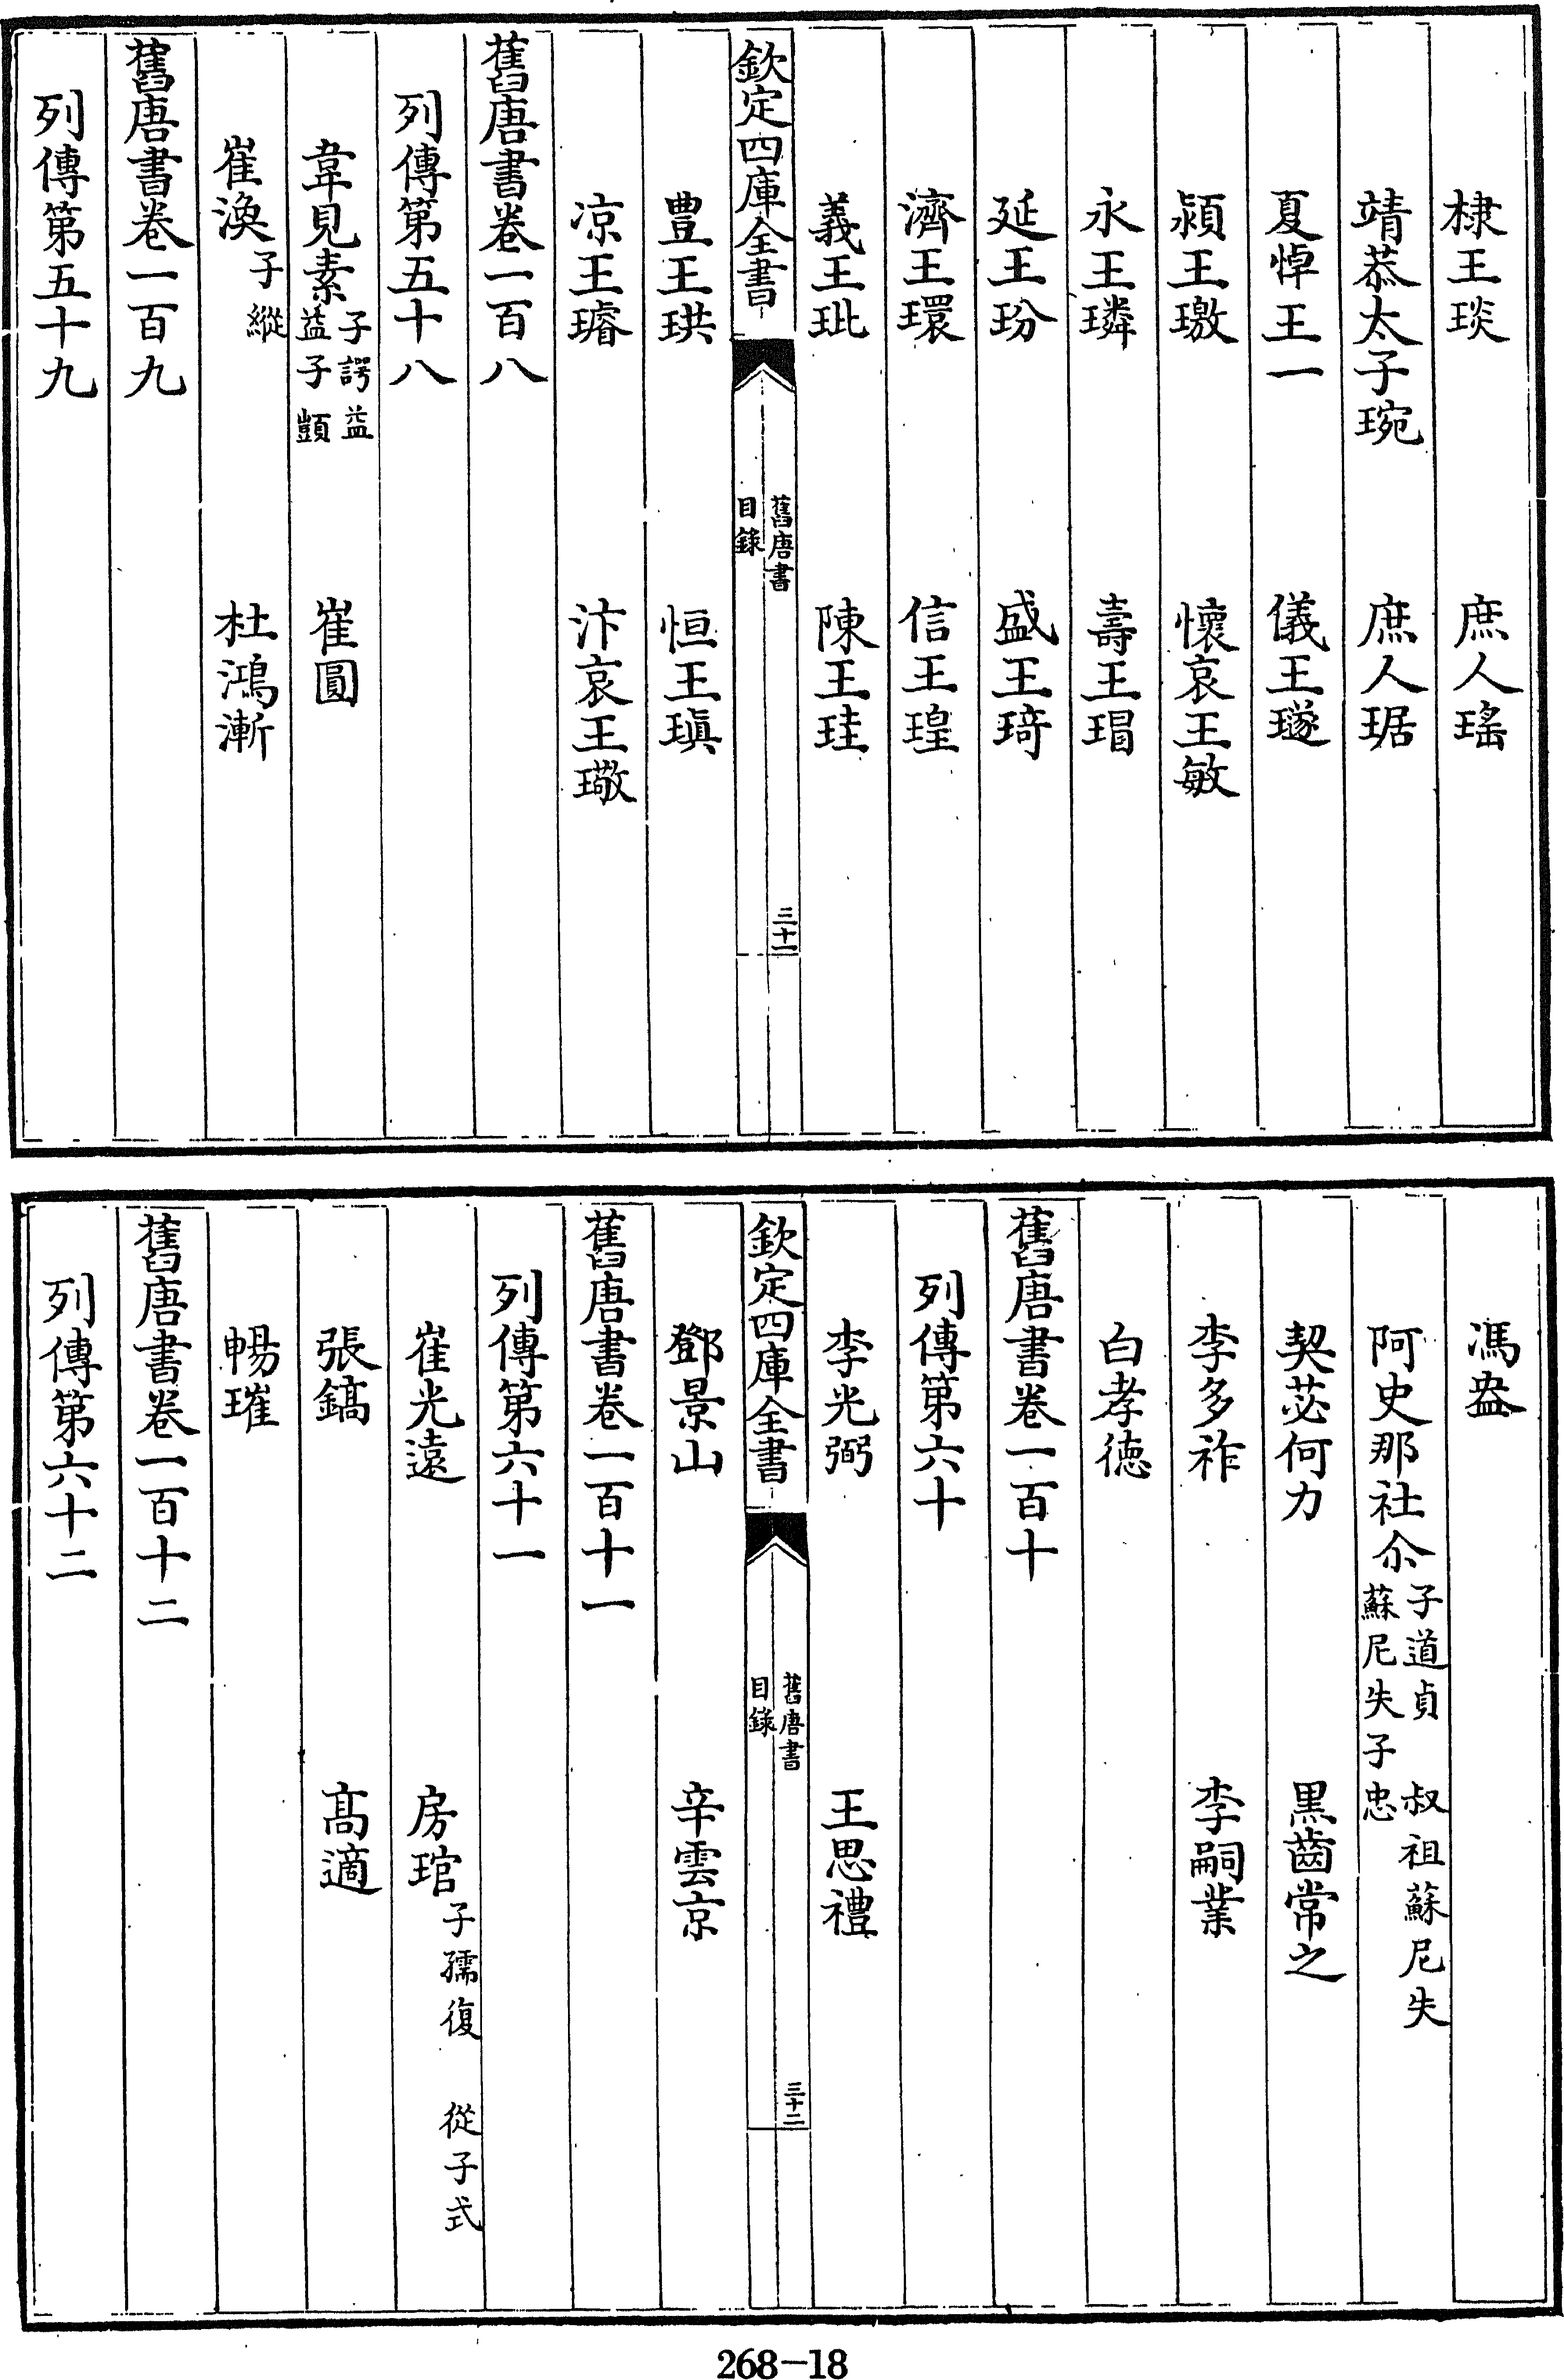 棣王琰　庶人瑤
靖恭太子琬　庶人琚
夏悼王一　儀王璲
潁王璬　懷哀王敏
永王璘　壽王瑁
延王玢　盛王琦
濟王環　信王瑝
義王玼　陳王珪
欽定四庫全書　舊唐書目錄　三十一
豊王珙　恒王瑱
凉王璿　汴哀王璥
舊唐書卷一百八
列傳第五十八
韋見素子諤益益子顗　崔圓
崔渙子縱　杜鴻漸
舊唐書卷一百九
列傳第五十九
馮盎
阿史那社尒子道貞　叔祖蘇尼失蘇尼失子忠
契苾何力　黒齒常之
李多祚　李嗣業
白孝德
舊唐書卷一百十
列傳第六十
李光弼　王思禮
欽定四庫全書　舊唐書目錄　三十二
鄧景山　辛雲京
舊唐書卷一百十一
列傳第六十一
崔光遠　房琯子孺復　從子式
張鎬　髙適
暢璀
舊唐書卷一百十二
列傳第六十二
268-18